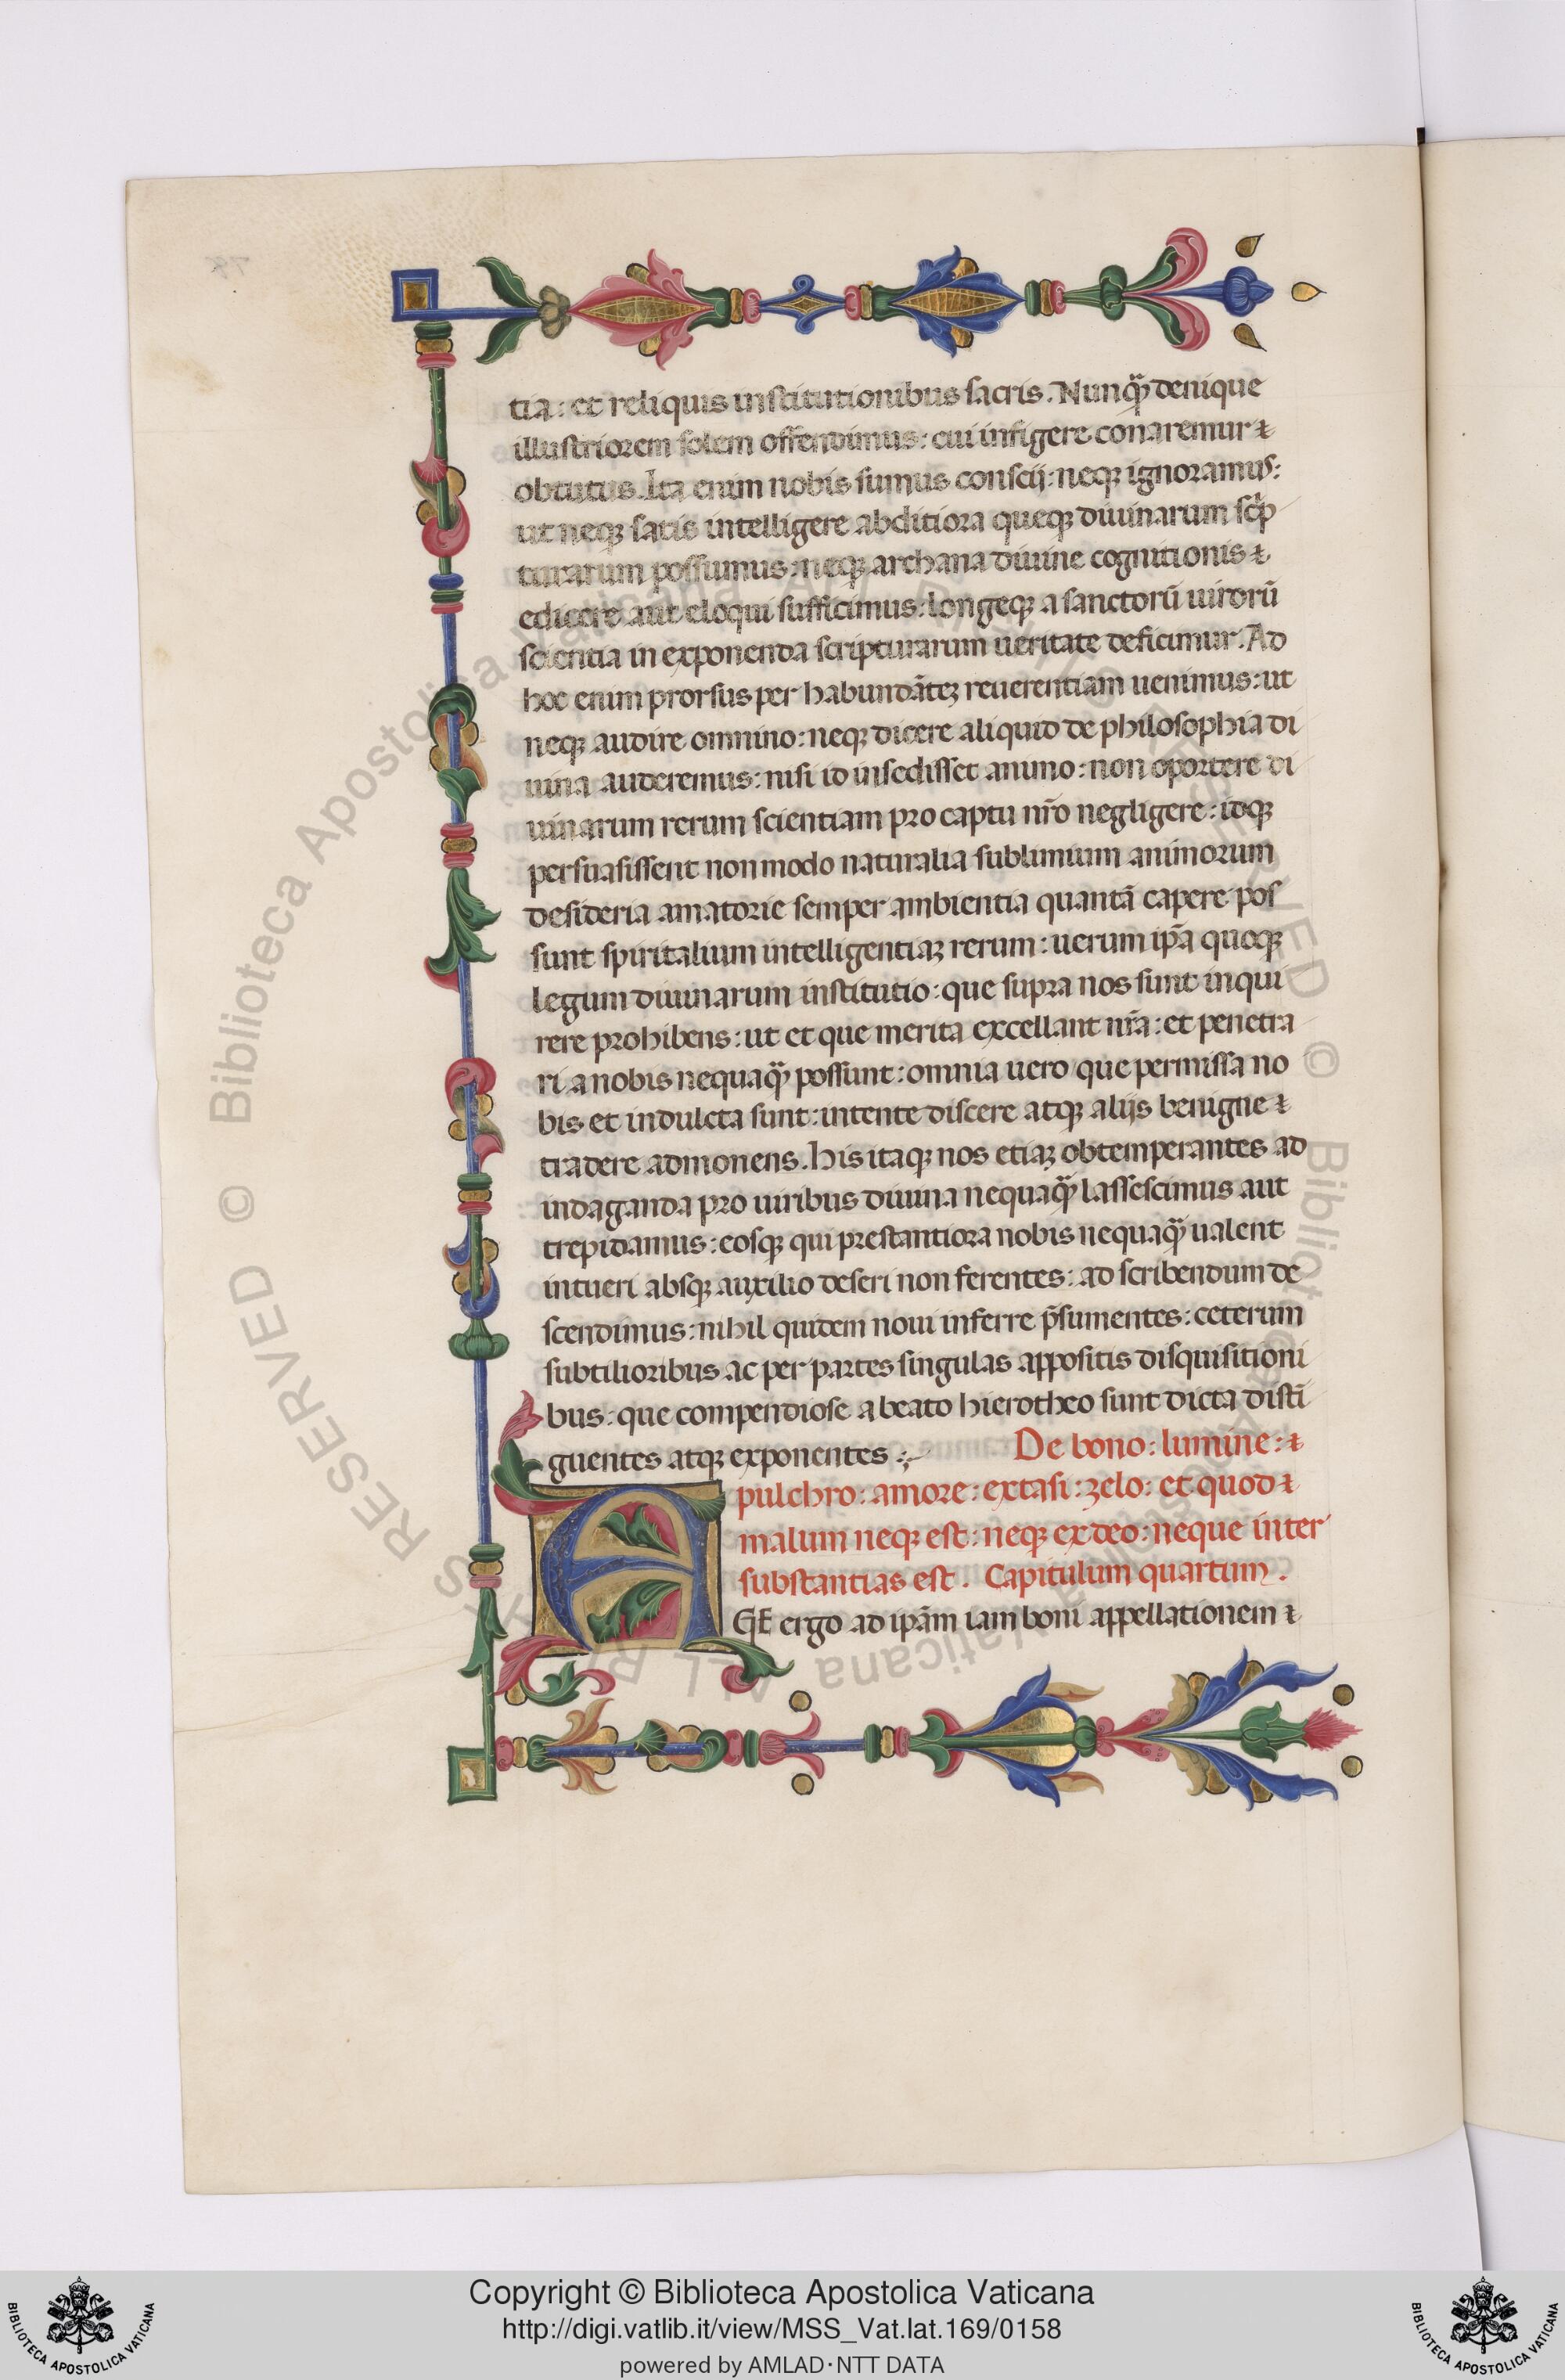 tia: et reliquis institutionibus sacris. Nunqȝ̃ denique
illustriorem solem offendimus: cui infigere conaremur ⁊
obtutus. Ita enim nobis sumus conscij: neqȝ ignoramus:
ut neqȝ satis intelligere abditiora queqȝ diuinarum sc̃p
turarum possumus: neqȝ archana diuine cognitionis ⁊
edicere aut eloqui sufficimus: longeqȝ a sanctorũ uirorũ
scientia in exponenda scripturarum ueritate deficimur. Ad
hoc enim prorsus per habundãteȝ reuerentiam uenimus: ut
neqȝ audire omnino: neqȝ dicere aliquid de philosophia di
uina auderemus: nisi id insedisset animo: non oportere di
uinarum rerum scientiam pro captu nr̃o negligere: idqȝ
persuasissent non modo naturalia sublimium animorum
desideria amatorie semper ambientia quantã capere pos
sunt spiritalium intelligentiaȝ rerum: uerum ip̃a quoqȝ
legum diuinarum institutio: que supra nos sunt inqui
rere prohibens: ut et que merita excellant nr̃a: et penetra
ri a nobis nequaqȝ̃ possunt: omnia uero que permissa no
bis et indulcta sunt: intente discere atqȝ alijs benigne ⁊
tradere admonens. his itaqȝ nos etiaȝ obtemperantes ad
indaganda pro uiribus diuina nequaqȝ̃ lassescimus aut
trepidamus: eosqȝ qui prestantiora nobis nequaqȝ̃ ualent
intueri absqȝ auxilio deseri non ferentes: ad scribendum de
scendimus: nihil quidem noui inferre p̃sumentes: ceterum
subtilioribus ac per partes singulas appositis disquisitioni
bus: que compendiose a beato hierotheo sunt dicta disti
guentes atqȝ exponentes :~ De bono: lumine: ⁊
pulchro: amore: extasi: zelo: et quod ⁊
malum neqȝ est: neqȝ ex deo: neque inter
substantias est. Capitulum quartum.
AGE ergo ad ip̃am iam boni appellationem ⁊
© Biblioteca Apostolica Vaticana ALL RIGHTS RESERVED
Copyright © Biblioteca Apostolica Vaticana
http://digi.vatlib.it/view/MSS_Vat.lat.169/0158
powered by AMLAD·NTT DATA
BIBLIOTECA APOSTOLICA VATICANA
BIBLIOTECA APOSTOLICA VATICANA